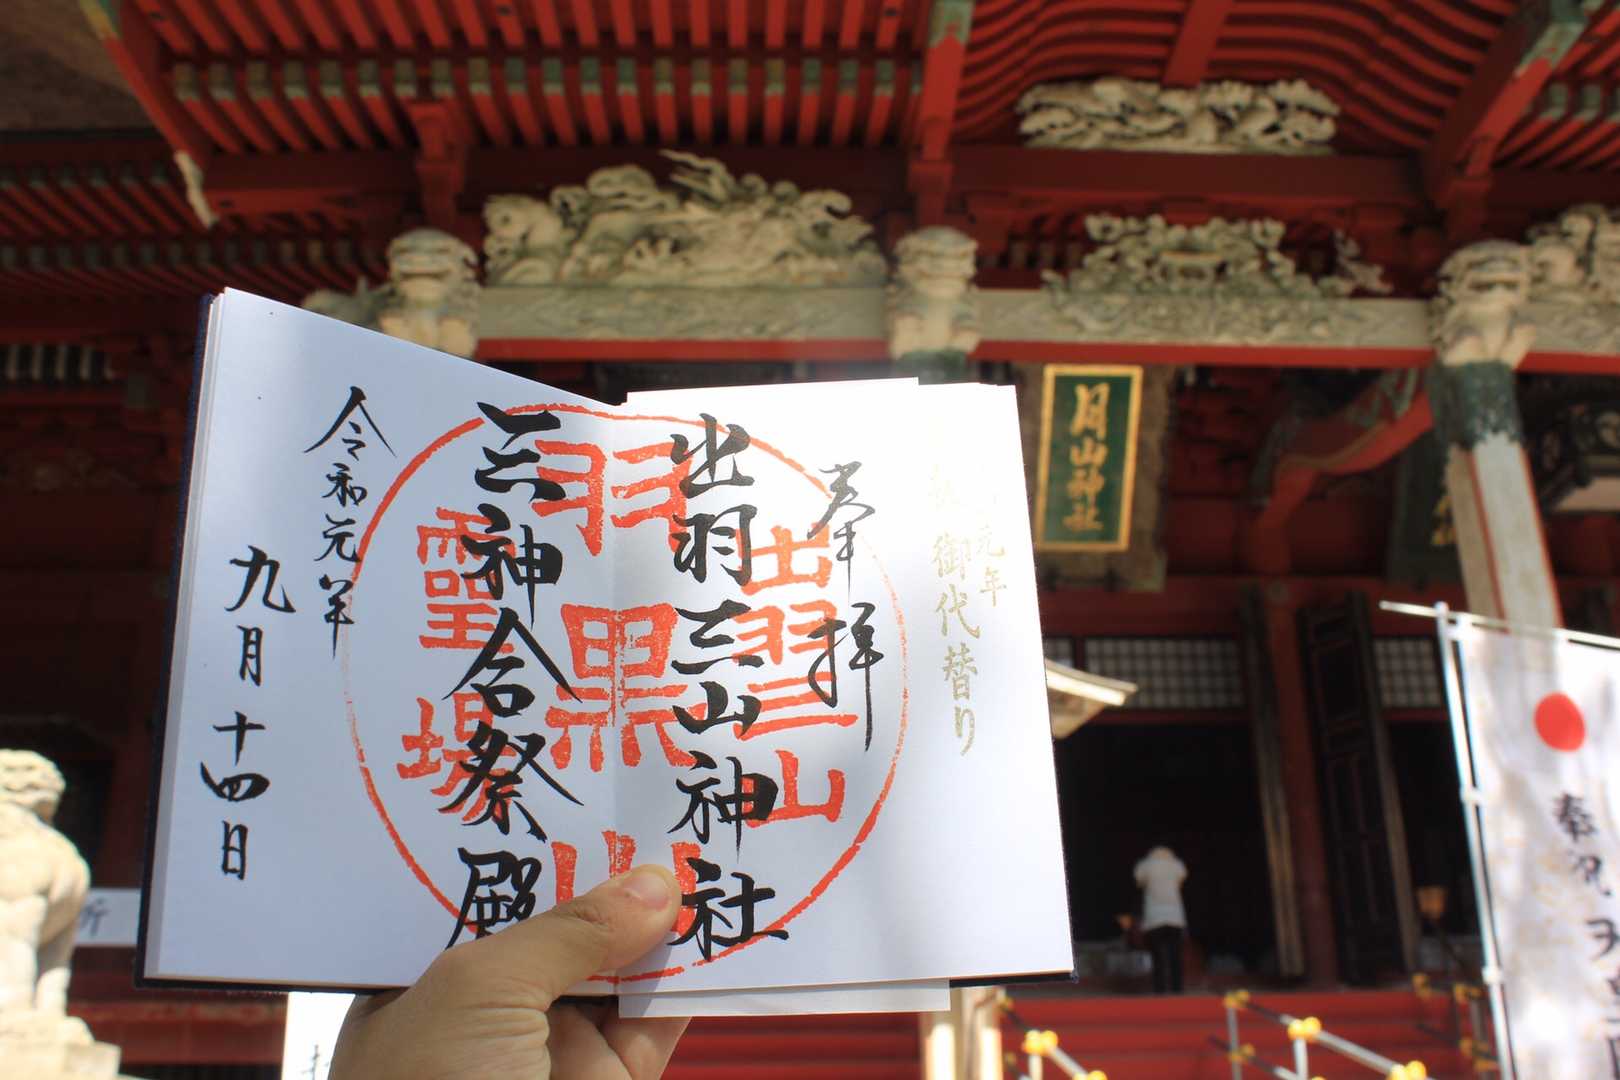 元年
御代替り
奉拝
出羽三山神社
三神合祭殿
令和元年
九月十四日
出羽三山
羽黒山
霊場
月山神社
奉祝
所